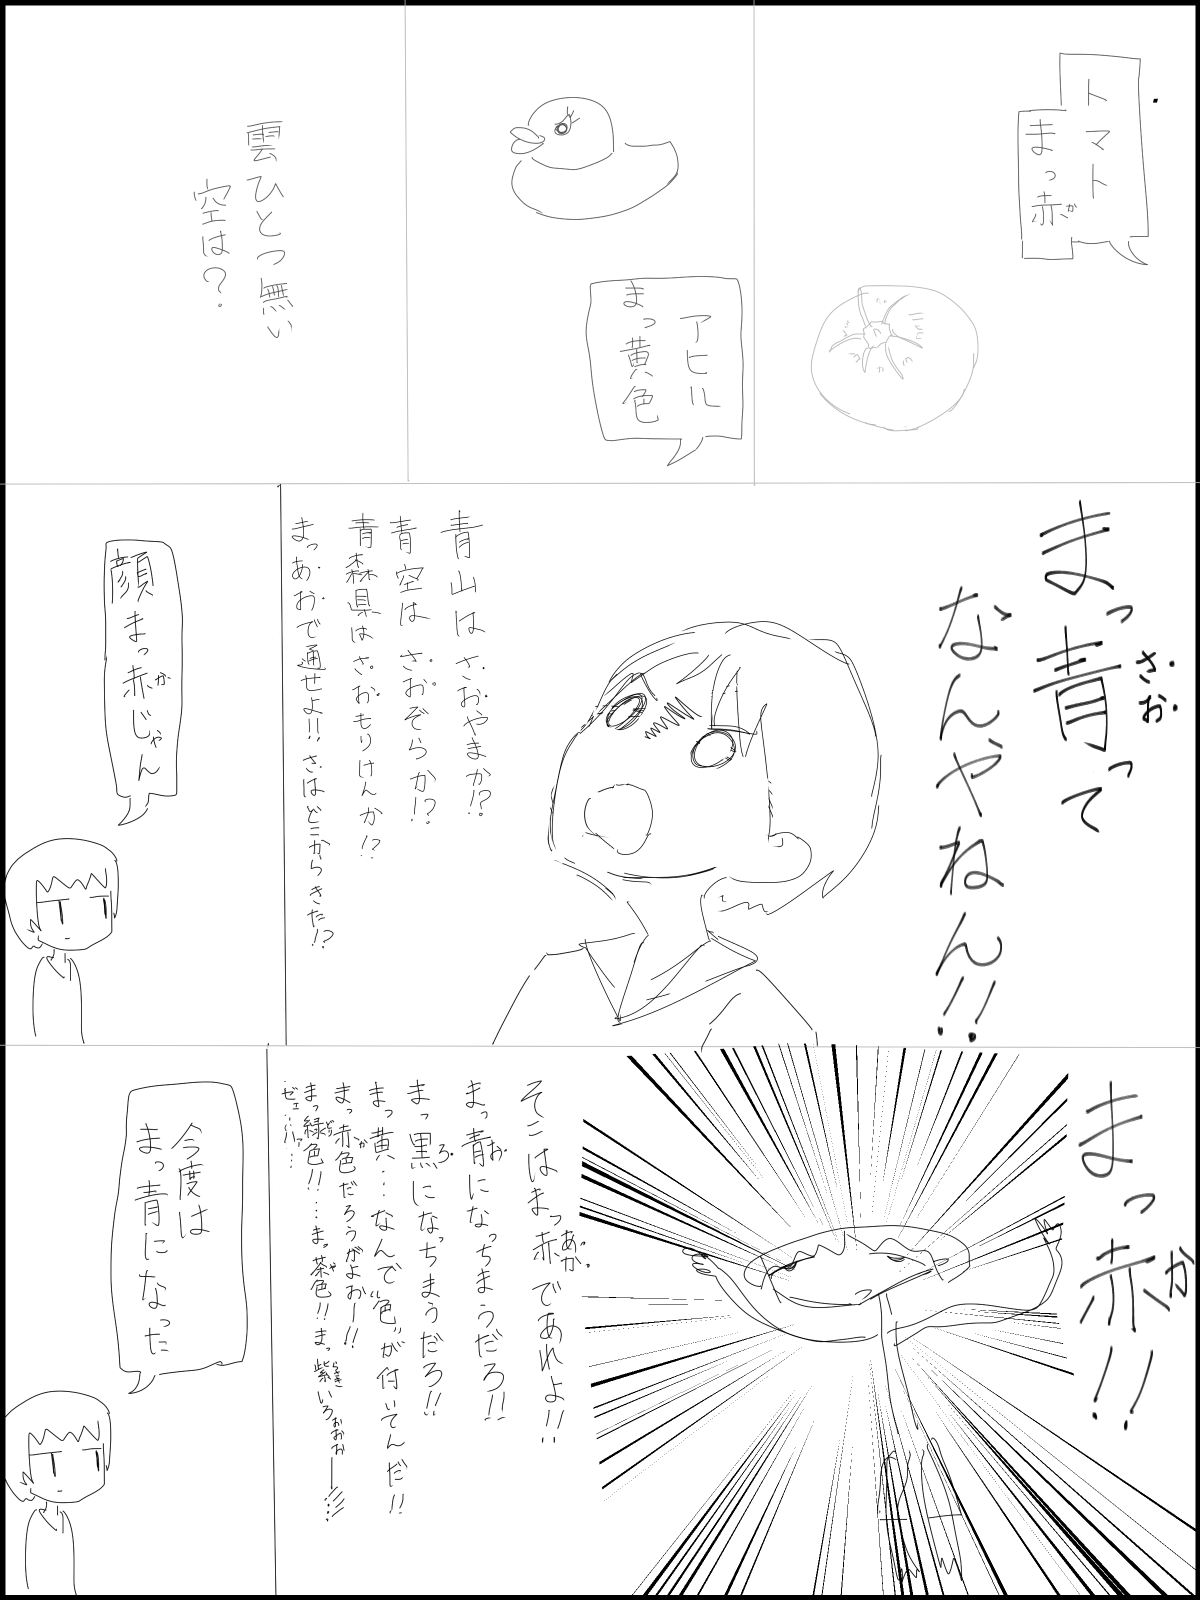 トマト
まっ赤
か
アヒル
まっ黄色
雲ひとつ無い
空は?
まっ青って
さお
なんやねん!!
青山はさおやまか!?
青空はさおぞらか!?
青森県はさおもりけんか!?
まっあおで通せよ!!さはどこからきた!?
顔まっ赤じゃん
か
まっ赤!!
か
そこはまっ赤であれよ!!
あか
まっ青になっちまうだろ!!
お
まっ黒になっちまうだろ!!
ろ
まっ黄…なんで"色"が付いてんだ!!
まっ赤色だろうがよおー!!
か
まっ緑色!!…まっ茶色!!まっ紫いろぉぉぉー
ゼェ…ハァ…
今度は
まっ青になった